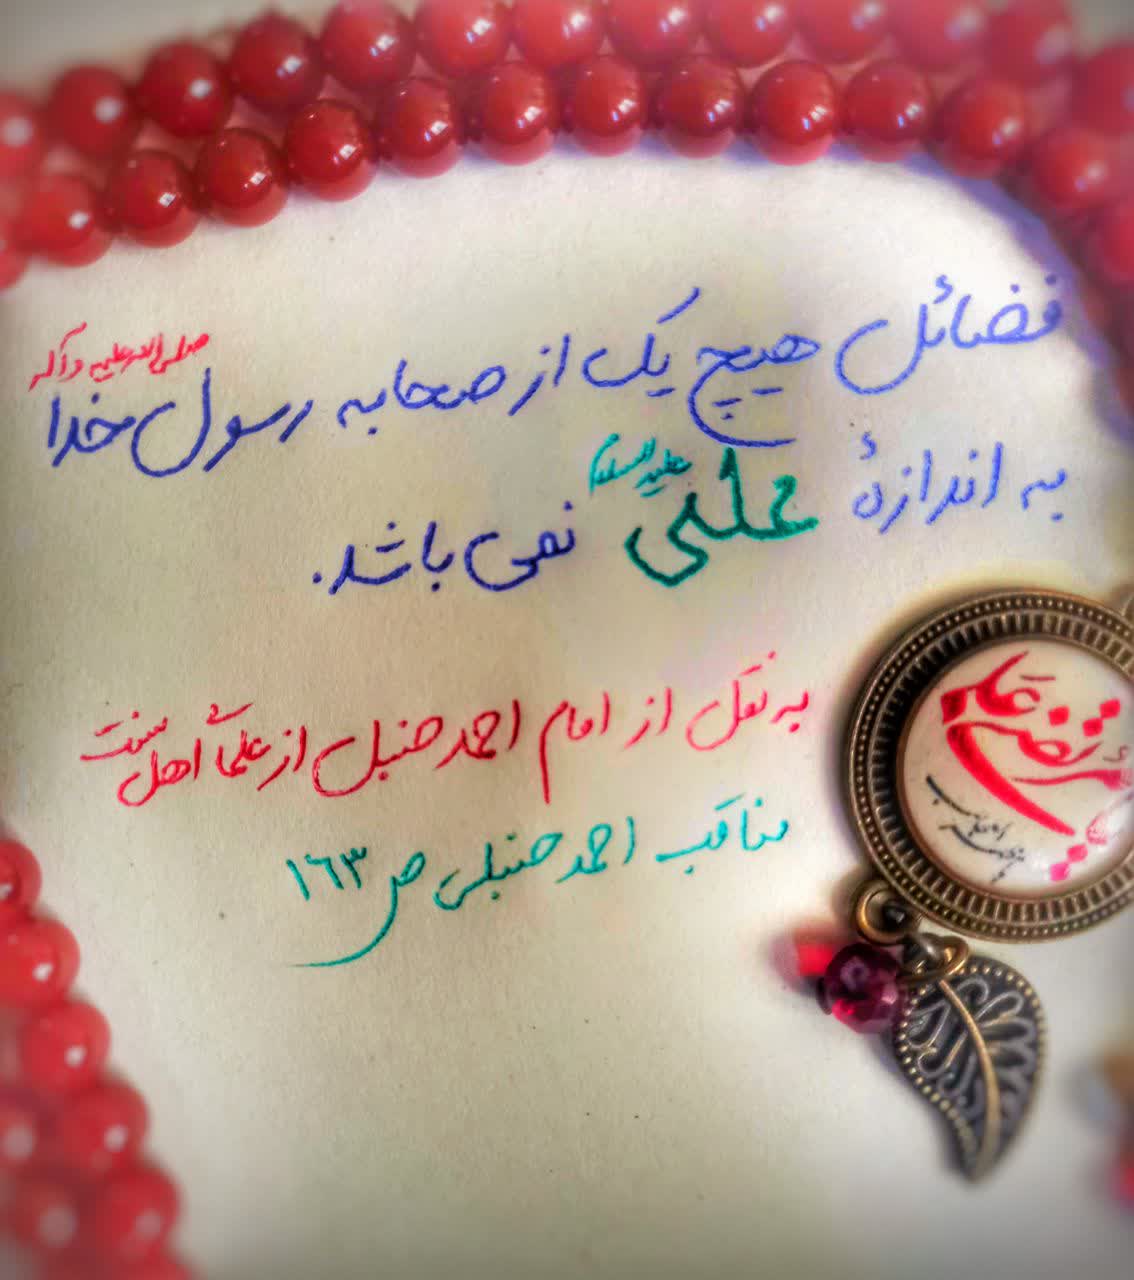 فضائل هیچ یک از صحابه رسول خدا صلی الله علیه و آله
به اندازهٔ علی علیه السلام نمی باشد.
به نقل از امام احمد حنبل از علمای اهل سنت
مناقب احمد حنبلی ص ١٦٣